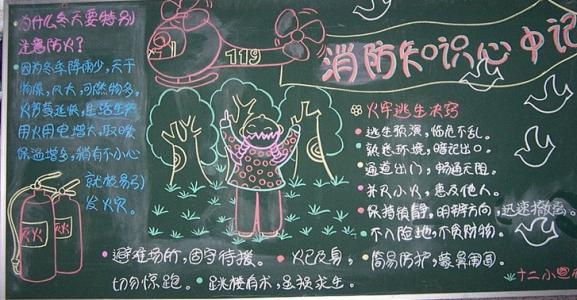 为什么冬天要特别
注意防火?
•因为冬季降雨少,天干
物燥,风大,可燃物多,
火势蔓延快,生活生产
用火用电增大,取暖
保温增多,稍有不小心
就极易引
发火灾。
灭火
灭火
119
消防知识心中记
火牢逃生决窍
•逃生预演,临危不乱。
熟悉环境,暗记出口
•通道出门,畅通无阻。
•扑灭小火,惠及他人。
•保持镇静,明辨方向,迅速撤离。
•不入险地,不贪财物。
•简易防护,蒙鼻匍匐。
•避难场所,固守待援。 •火已及身,
切勿惊跑。 •跳楼有术,虽损求生。
十二小宣